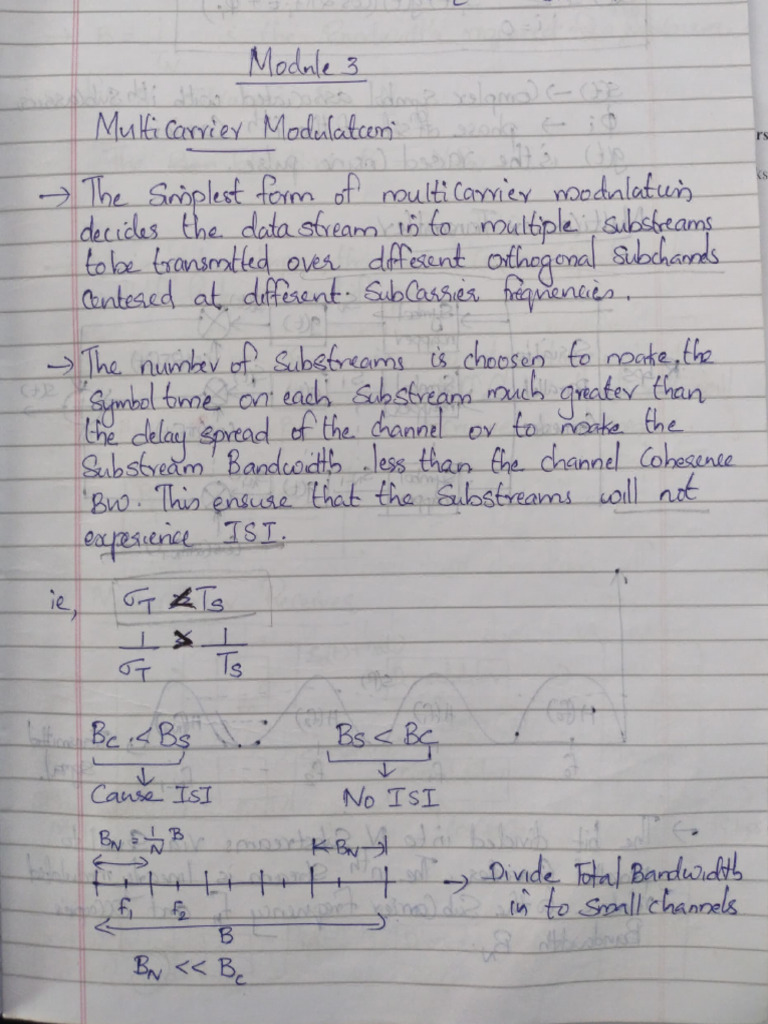 Module 3
Multicarrier Modulation
→ The Simplest form of multicarrier modulation
decides the data stream in to multiple substreams
to be transmitted over different orthogonal Subchannels
Centered at different SubCarrier frequencies.
→ The number of Substreams is choosen to make the
Symbol time on each Substream much greater than
the delay spread of the channel or to make the
Substream Bandwidth less than the channel Coherence
BW. This ensure that the Substreams will not
experience ISI.
ie, σT < Ts
1/σT > 1/Ts
Bc < Bs Bs < Bc
Cause ISI No ISI
BN = 1/N B BN
f1 f2 → Divide Total Bandwidth
B in to Small channels
BN << Bc